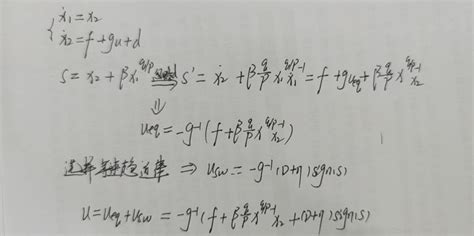 { ẋ₁ = x₂
ẋ₂ = f + gu + d
S = x₂ + βx₁^{q/p} ⟹ S' = ẋ₂ + β q/p x₁^{q/p-1} ẋ₁ = f + gu_{eq} + β q/p x^{q/p-1} x₂
⇓
u_{eq} = -g⁻¹(f + β q/p x^{q/p-1} x₂)
选择等速趋近律 ⇒ u_{sw} = -g⁻¹(D+η)sgn(s)
u = u_{eq} + u_{sw} = -g⁻¹(f + β q/p x^{q/p-1} x₂ + (D+η)sgn(s)